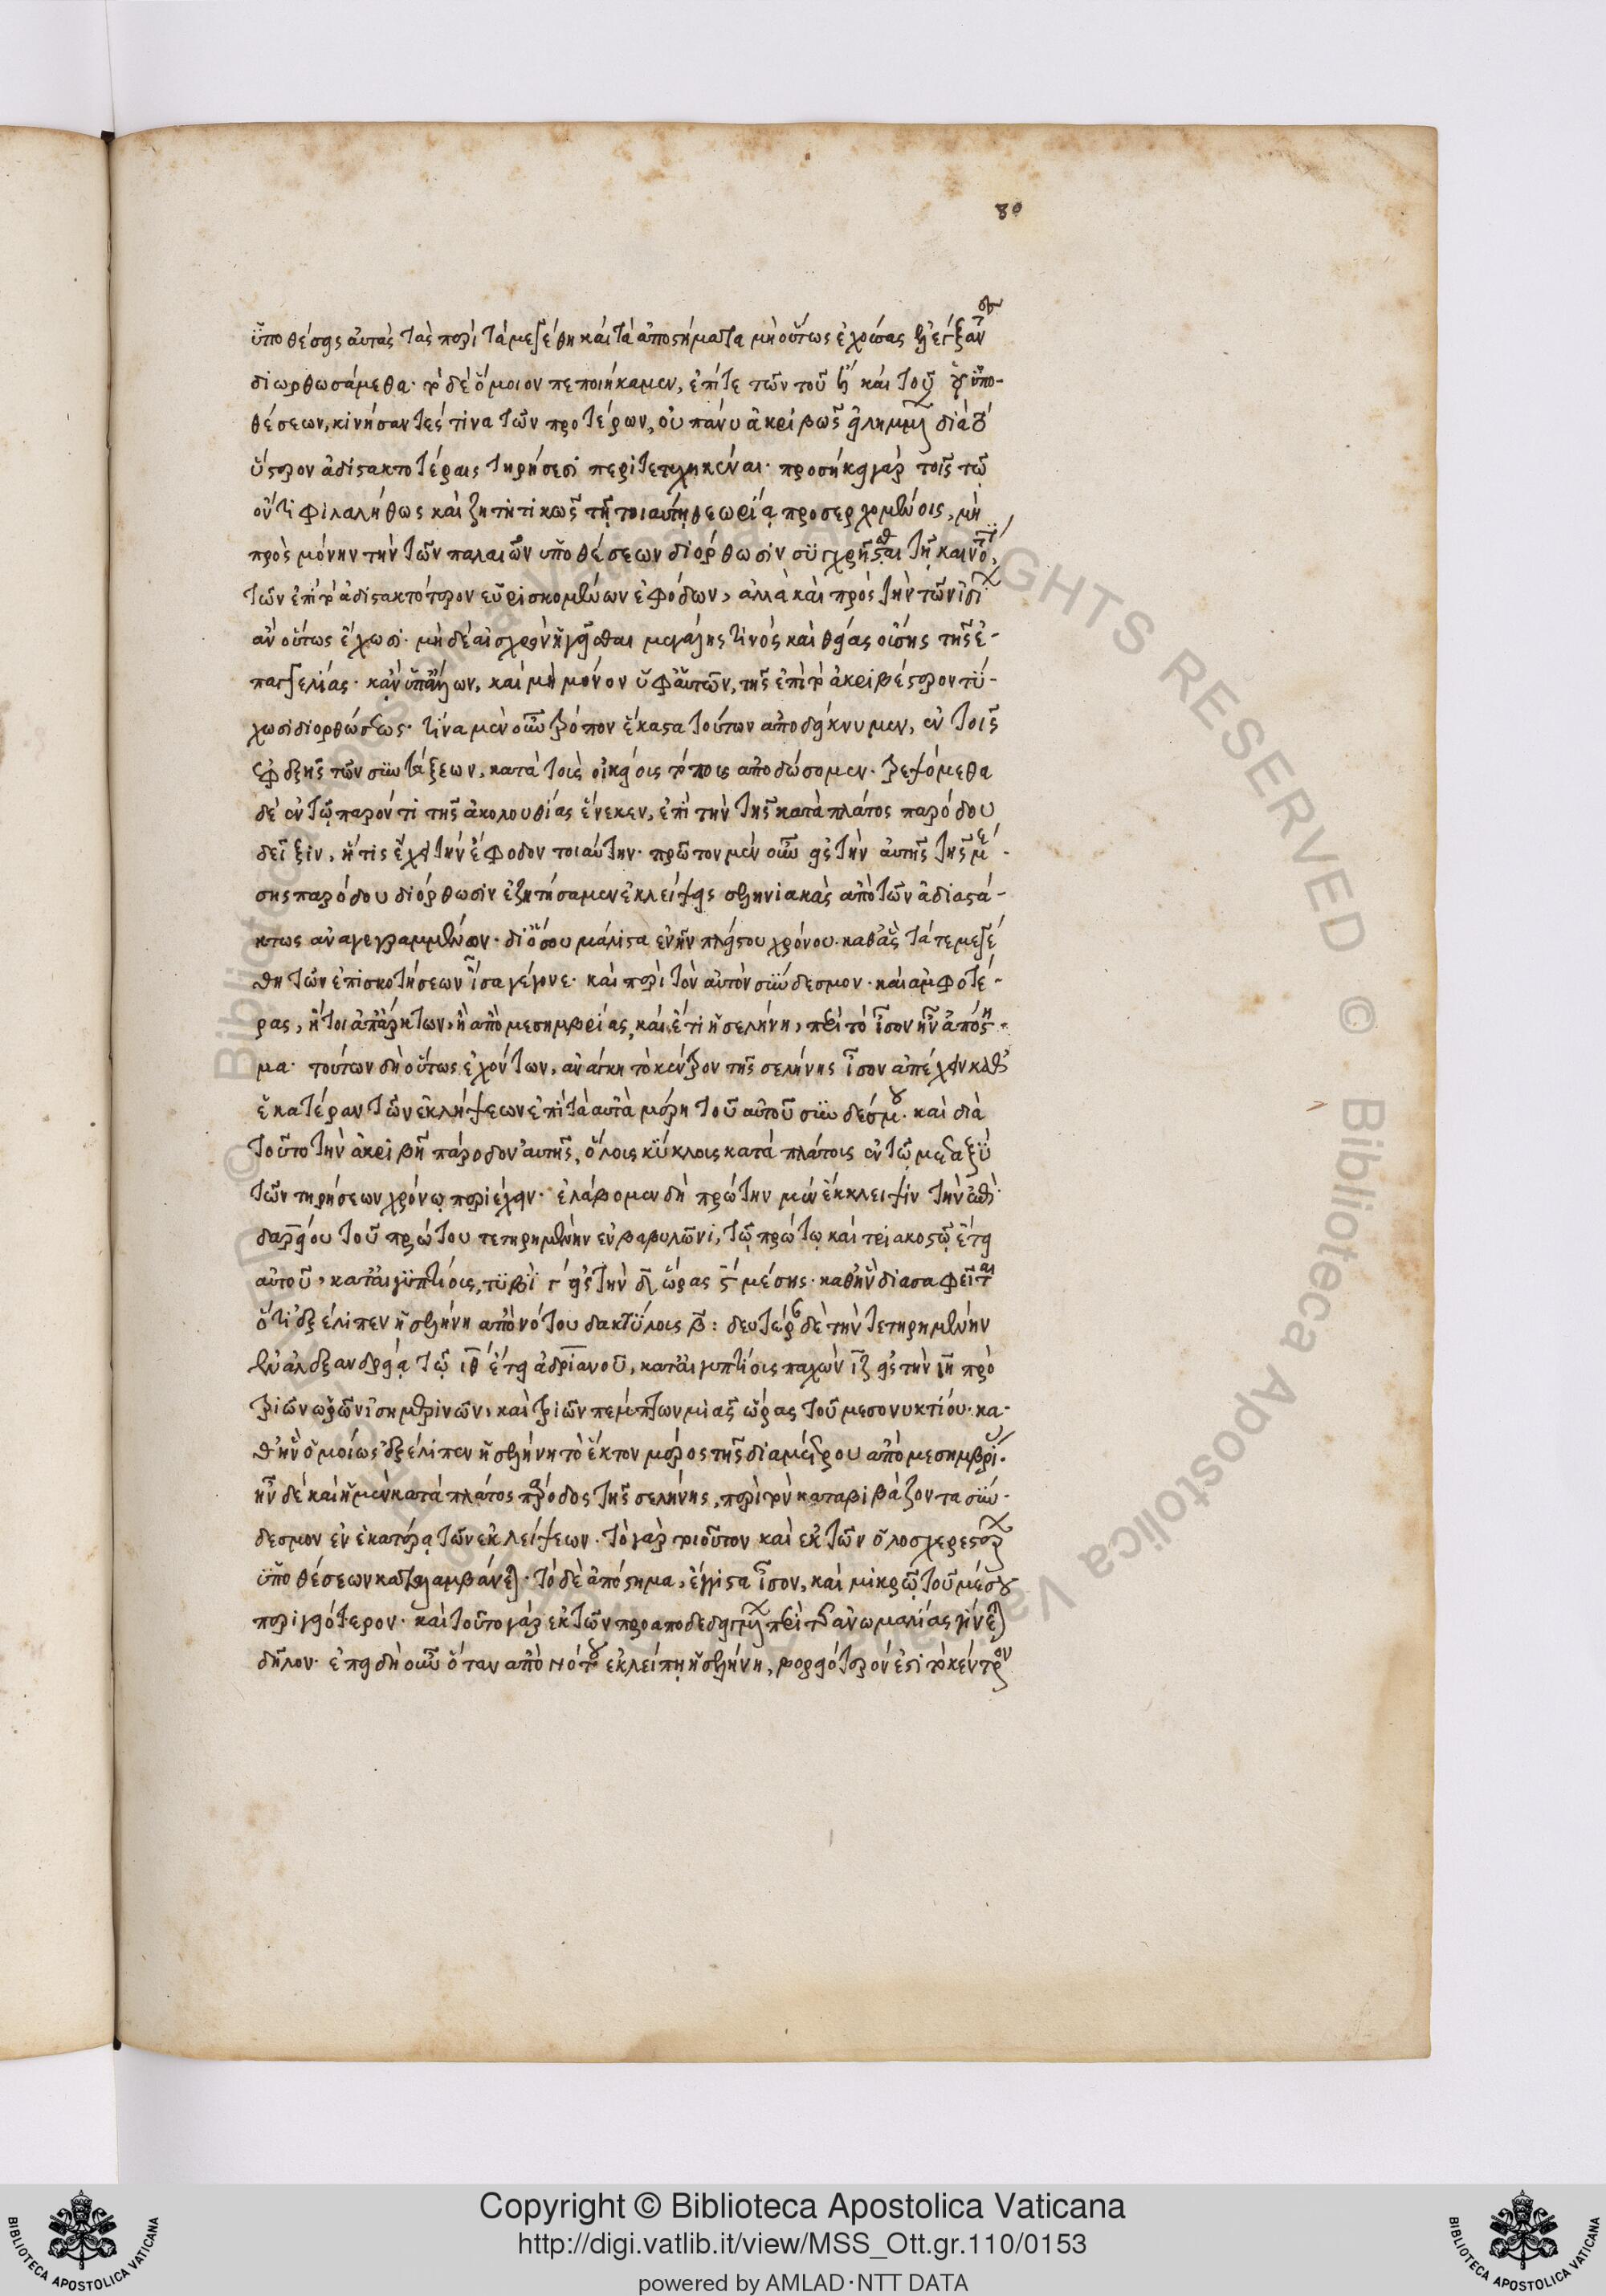 80
ὑποθέσεις αὐτὰς τὰς περὶ τὰ μεγέθη καὶ τὰ ἀποστήματα μὴ οὕτως ἐχούσας
διωρθωσάμεθα· τὸ δὲ ὅμοιον πεποιήκαμεν, ἐπί τε τῶν τοῦ ♄ καὶ τοῦ ☿ ὑπο-
θέσεων, κινήσαντές τινα τῶν προτέρων, οὐ πάνυ ἀκριβῶς εἰλημμένων διὰ τὸ
ὕστερον ἀδιστακτοτέραις τηρήσεσι περιτετυχηκέναι· προσήκει γὰρ τοῖς τῷ
ὄντι φιλαλήθως καὶ ζητητικῶς τῇ τοιαύτῃ θεωρίᾳ προσερχομένοις, μὴ
πρὸς μόνην τὴν τῶν παλαιῶν ὑποθέσεων διόρθωσιν συγχρῆσθαι τῇ καινότητι
τῶν ἐπὶ τὸ ἀδιστακτότερον εὑρισκομένων ἐφόδων, ἀλλὰ καὶ πρὸς τὴν τῶν ἰδίων
ἂν οὕτως ἔχωσι· μηδὲ αἰσχρὸν ἡγεῖσθαι μεγάλης τινὸς καὶ θείας οὔσης τῆς ἐ-
παγγελίας· κἂν ὑπ' ἄλλων, καὶ μὴ μόνον ὑφ' αὑτῶν, τῆς ἐπὶ τὸ ἀκριβέστερον τύ-
χωσι διορθώσεως· τίνα μὲν οὖν τρόπον ἕκαστα τούτων ἀποδείκνυμεν, ἐν τοῖς
ἐφεξῆς τῶν συντάξεων, κατὰ τοὺς οἰκείους τόπους ἀποδώσομεν· τρεψόμεθα
δὲ ἐν τῷ παρόντι τῆς ἀκολουθίας ἕνεκεν, ἐπὶ τὴν τῆς κατὰ πλάτος παρόδου
δεῖξιν, ἥτις ἔχει τὴν ἔφοδον τοιαύτην· πρῶτον μὲν οὖν εἰς τὴν αὐτῆς τῆς μέ-
σης παρόδου διόρθωσιν ἐζητήσαμεν ἐκλείψεις σεληνιακὰς ἀπὸ τῶν ἀδιαστά-
κτως ἀναγεγραμμένων· δι' ὅσου μάλιστα ἐνῆν πλείστου χρόνου· καθ' ἃς τά τε μεγέ-
θη τῶν ἐπισκοτήσεων ἴσα γέγονε· καὶ περὶ τὸν αὐτὸν σύνδεσμον· καὶ ἀμφότε-
ρας, ἤτοι ἀπ' ἄρκτων, ἢ ἀπὸ μεσημβρίας, καὶ ἔτι ἡ σελήνη, περὶ τὸ ἴσον ἦν ἀπόστη-
μα· τούτων δὴ οὕτως ἐχόντων, ἀνάγκη τὸ κέντρον τῆς σελήνης ἴσον ἀπέχειν καθ'
ἑκατέραν τῶν ἐκλείψεων ἐπὶ τὰ αὐτὰ μέρη τοῦ αὐτοῦ συνδέσμου· καὶ διὰ
τοῦτο τὴν ἀκριβῆ πάροδον αὐτῆς, ὅλους κύκλους κατὰ πλάτους ἐν τῷ μεταξὺ
τῶν τηρήσεων χρόνῳ περιέχειν· ἐλάβομεν δὴ πρώτην μὲν ἔκλειψιν τὴν ἐπὶ
δαρείου τοῦ πρώτου τετηρημένην ἐν βαβυλῶνι, τῷ πρώτῳ καὶ τριακοστῷ ἔτει
αὐτοῦ, κατ' αἰγυπτίους, τυβὶ γ' εἰς τὴν δ ὥρας ϛ μέσης· καθ' ἣν διασαφεῖται
ὅτι ἐξέλιπεν ἡ σελήνη ἀπὸ νότου δακτύλους β: δευτέραν δὲ τὴν τετηρημένην
ἐν ἀλεξανδρείᾳ τῷ ιθ ἔτει ἀδριανοῦ, κατ' αἰγυπτίους παχὼν ιζ εἰς τὴν ιη πρὸ
τριῶν ὡρῶν ἰσημερινῶν, καὶ τριῶν πέμπτων μιᾶς ὥρας τοῦ μεσονυκτίου· κα-
θ' ἣν ὁμοίως ἐξέλιπεν ἡ σελήνη τὸ ἕκτον μέρος τῆς διαμέτρου ἀπὸ μεσημβρίας·
ἦν δὲ καὶ ἡ μὲν κατὰ πλάτος πάροδος τῆς σελήνης, περὶ τὸν καταβιβάζοντα σύν-
δεσμον ἐν ἑκατέρᾳ τῶν ἐκλείψεων· τὸ γὰρ τοιοῦτον καὶ ἐκ τῶν ὁλοσχερεστέρων
ὑποθέσεων καταλαμβάνεται· τὸ δὲ ἀπόστημα, ἔγγιστα ἴσον, καὶ μικρῷ τοῦ μέσου
περιγειότερον· καὶ τοῦτο γὰρ ἐκ τῶν προαποδεδειγμένων περὶ τῆς ἀνωμαλίας γίνεται
δῆλον· ἐπειδὴ οὖν ὅταν ἀπὸ νότου ἐκλείπῃ ἡ σελήνη, βορειότερόν ἐστι τὸ κέντρον
Copyright © Biblioteca Apostolica Vaticana
http://digi.vatlib.it/view/MSS_Ott.gr.110/0153
powered by AMLAD·NTT DATA